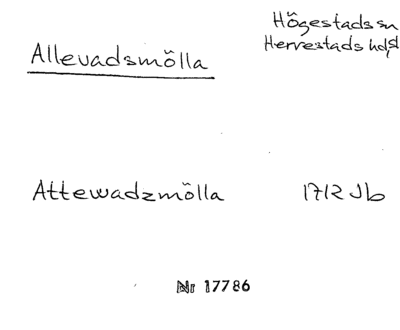 Högestads sn
Herrestads hd
Allevadsmölla
Attewadzmölla 1712 Jb
Nr 17786